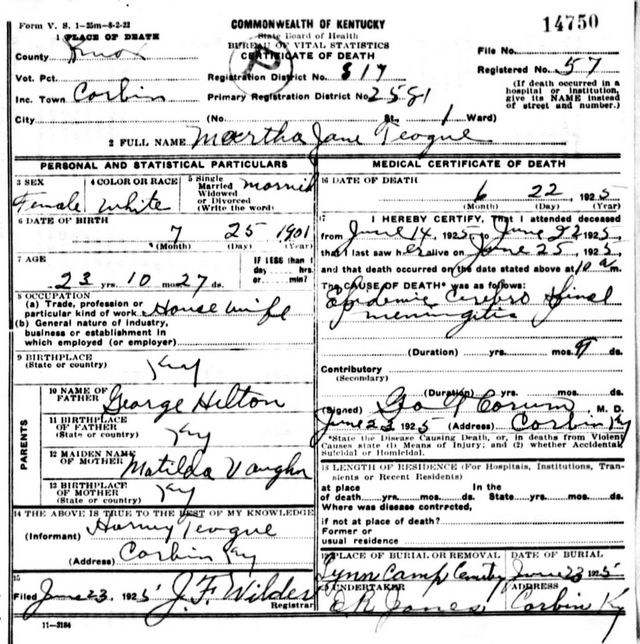 Form V. S. 1-25m-8-2-22
COMMONWEALTH OF KENTUCKY
State Board of Health
BUREAU OF VITAL STATISTICS
CERTIFICATE OF DEATH
14750
1 PLACE OF DEATH
County Knox
Vot. Pct.
Inc. Town Corbin
City
Registration District No. 817
Primary Registration District No. 2581
(No. St., 1 Ward)
File No.
Registered No. 57
(If death occurred in a hospital or institution, give its NAME instead of street and number.)
2 FULL NAME Martha Jane Teague
PERSONAL AND STATISTICAL PARTICULARS
3 SEX Female
4 COLOR OR RACE White
5 Single Married Widowed or Divorced (Write the word)
6 DATE OF BIRTH
7 25 1901
(Month) (Day) (Year)
7 AGE
IF LESS than 1 day hrs. or min.?
23 yrs. 10 mos. 27 ds.
8 OCCUPATION
(a) Trade, profession or particular kind of work House wife
(b) General nature of industry, business or establishment in which employed (or employer)
9 BIRTHPLACE
(State or country) Kay
PARENTS
10 NAME OF FATHER George Hilton
11 BIRTHPLACE OF FATHER (State or country) Kay
12 MAIDEN NAME OF MOTHER Matilda Vaughn
13 BIRTHPLACE OF MOTHER (State or country) Kay
14 THE ABOVE IS TRUE TO THE BEST OF MY KNOWLEDGE
(Informant) Teague
(Address) Corbin Kay
15
Filed June 23, 1925 J. F. Wilder
Registrar
11-3184
MEDICAL CERTIFICATE OF DEATH
16 DATE OF DEATH
6 22 1925
(Month) (Day) (Year)
17 I HEREBY CERTIFY, That I attended deceased
from June 14, 1925, to June 22, 1925,
that I last saw her alive on June 25, 1925,
and that death occurred on the date stated above at 10 a m.
The CAUSE OF DEATH* was as follows:
Epidemic Cerebro Spinal
meningitis
(Duration) yrs. mos. 9 ds.
Contributory
(Secondary)
(Duration) yrs. mos. ds.
(Signed) Corum M. D.
June 23 1925 (Address) Corbin Ky
*State the Disease Causing Death, or, in deaths from Violent
Causes state (1) Means of Injury; and (2) whether Accidental,
Suicidal or Homicidal.
18 LENGTH OF RESIDENCE (For Hospitals, Institutions, Transients or Recent Residents)
at place of death yrs. mos. ds.
In the State yrs. mos. ds.
Where was disease contracted,
if not at place of death?
Former or
usual residence
19 PLACE OF BURIAL OR REMOVAL
DATE OF BURIAL
Lynn Camp June 23 1925
20 UNDERTAKER
ADDRESS
Jones Corbin Ky